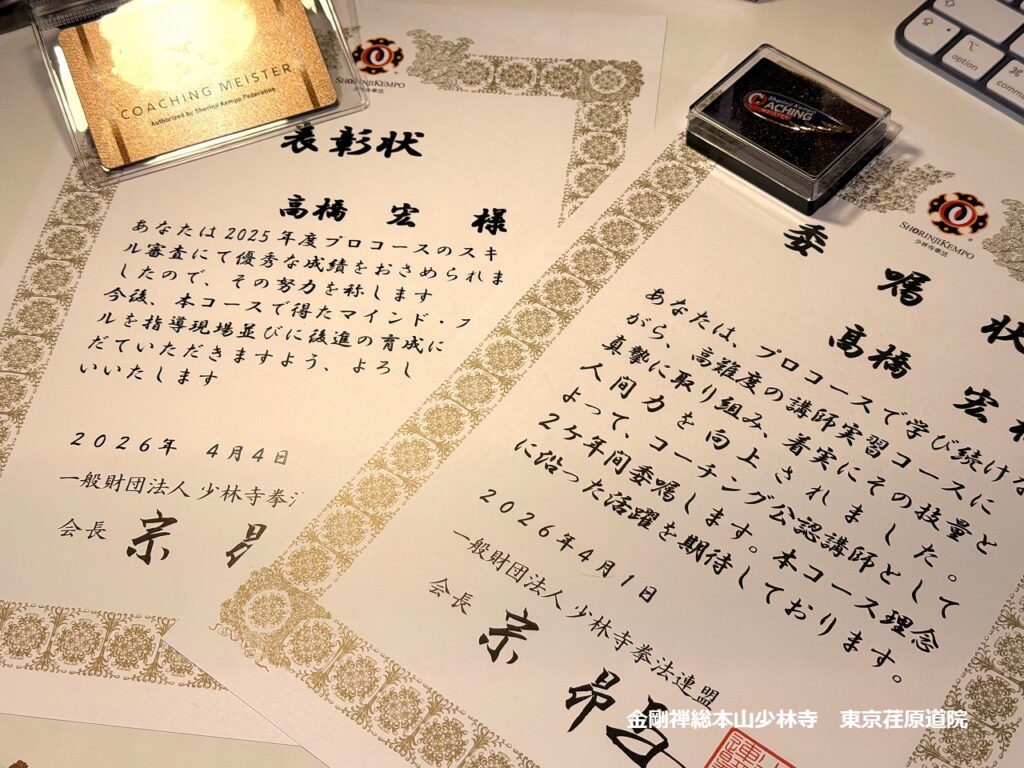 COACHING MEISTER
Authorized by Shorinji Kempo Federation
SHORINJI KEMPO
少林寺拳法
表彰状
高橋 宏 様
あなたは2025年度プロコースのスキ
ル審査にて優秀な成績をおさめられま
したので、その努力を称します
今後、本コースで得たマインド・
ルを指導現場並びに後進の育成に
だていただきますよう、よろし
いいたします
2026年 4月4日
一般財団法人 少林寺拳
会長 宗
Shorinji Kempo
COACHING
MEISTER
option
SHORINJI KEMPO
少林寺拳法
委嘱状
高橋 宏
あなたは、プロコースで学び続けな
がら、高難度の講師実習コースに
真摯に取り組み、着実にその技量と
人間力を向上されました。
よって、コーチング公認講師として
2ケ年間委嘱します。本コース理念
に沿った活躍を期待しております。
2026年4月1日
一般財団法人 少林寺拳法連盟
会長 宗 昂
金剛禅総本山少林寺 東京荏原道院